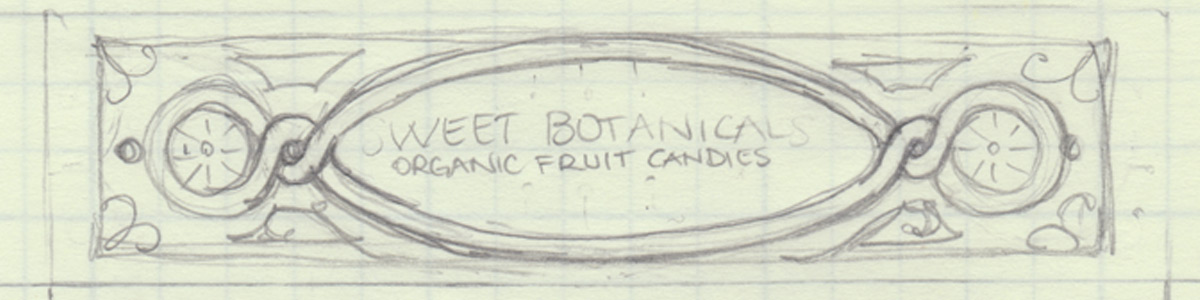 SWEET BOTANICALS
ORGANIC FRUIT CANDIES